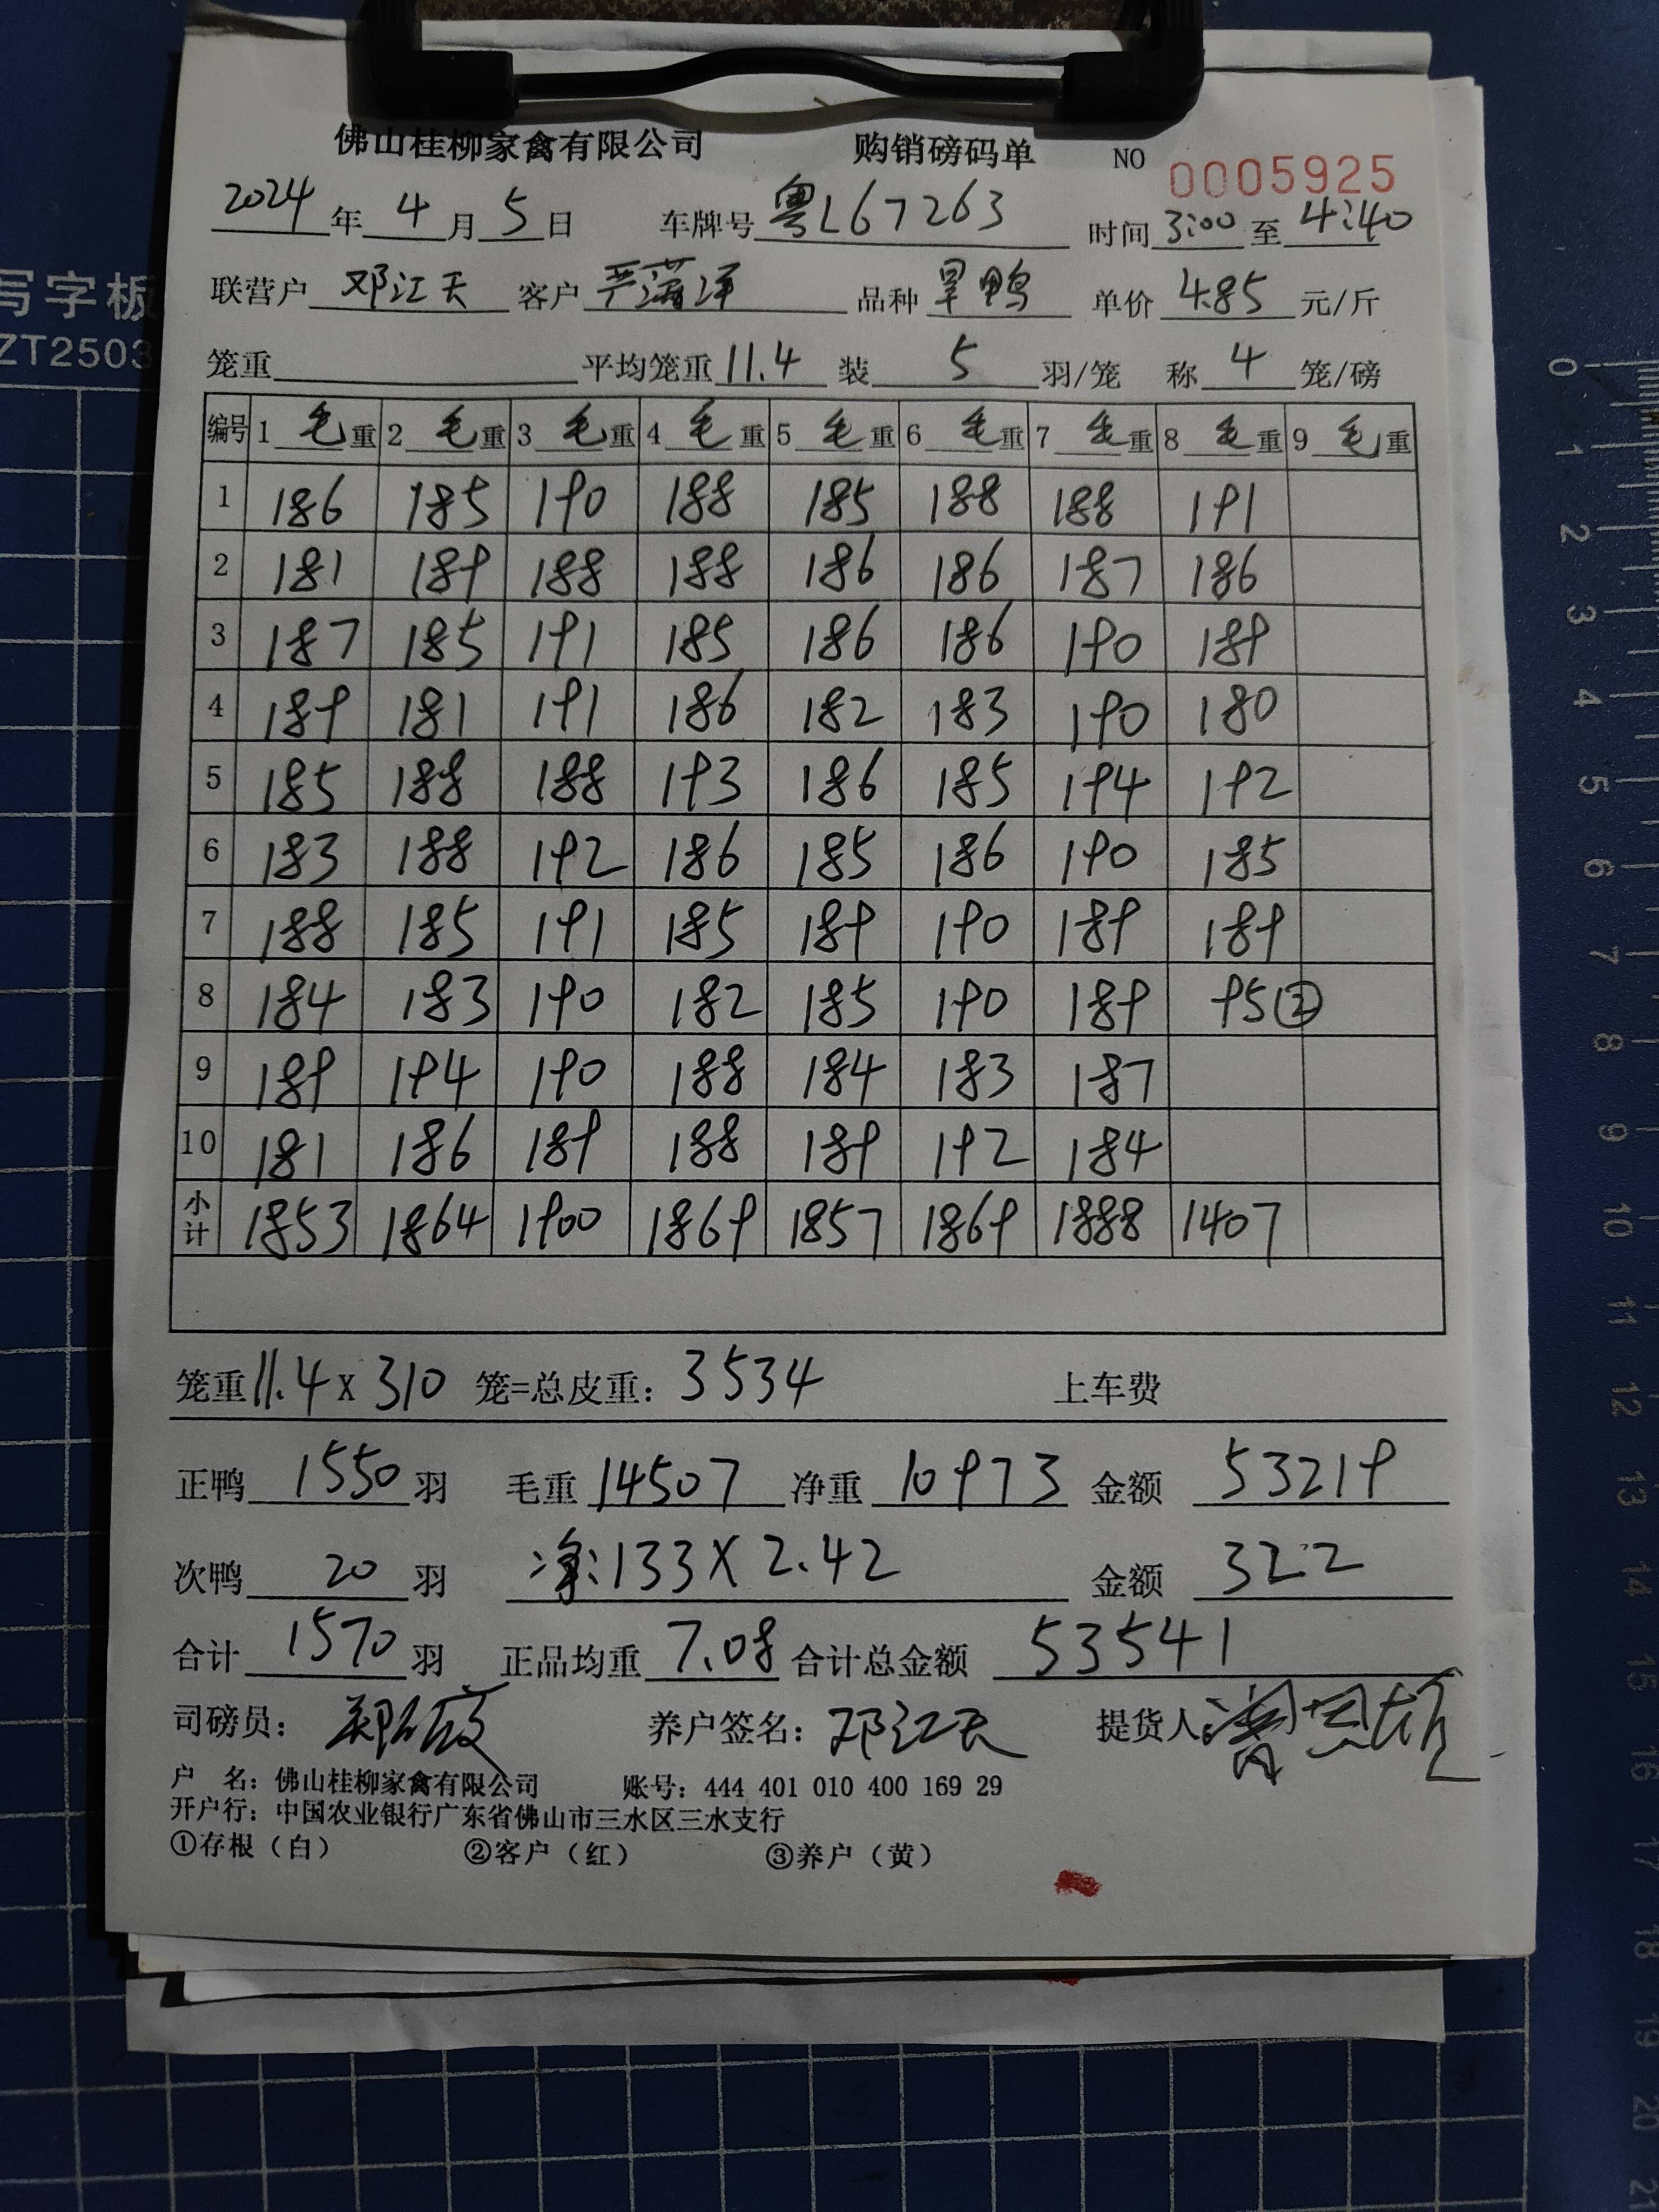 佛山桂柳家禽有限公司 购销磅码单 NO 0005925
2024年4月5日 车牌号粤L67263 时间3:00至4:40
联营户邓江天 客户严 品种旱鸭 单价4.85元/斤
笼重 平均笼重11.4 装5羽/笼 称4笼/磅
编号 1毛重 2毛重 3毛重 4毛重 5毛重 6毛重 7毛重 8毛重 9毛重
1 186 185 190 188 185 188 188 191
2 181 189 188 188 186 186 187 186
3 187 185 191 185 186 186 190 189
4 189 181 191 186 182 183 190 180
5 185 188 188 193 186 185 194 192
6 183 188 192 186 185 186 190 185
7 188 185 191 185 189 190 189 189
8 184 183 190 182 185 190 189 95②
9 189 194 190 188 184 183 187
10 181 186 189 188 189 192 184
小计 1853 1864 1900 1869 1857 1869 1888 1407
笼重11.4×310笼=总皮重:3534 上车费
正鸭1550羽 毛重14507 净重10973 金额53219
次鸭20羽 净:133×2.42 金额322
合计1570羽 正品均重7.08 合计总金额53541
司磅员: 养户签名:邓江天 提货人:
户 名:佛山桂柳家禽有限公司 账号:444 401 010 400 169 29
开户行:中国农业银行广东省佛山市三水区三水支行
①存根(白) ②客户(红) ③养户(黄)
写字板
ZT2503
0
1
2
3
4
5
6
7
8
9
10
11
12
13
14
15
16
17
18
19
20
21